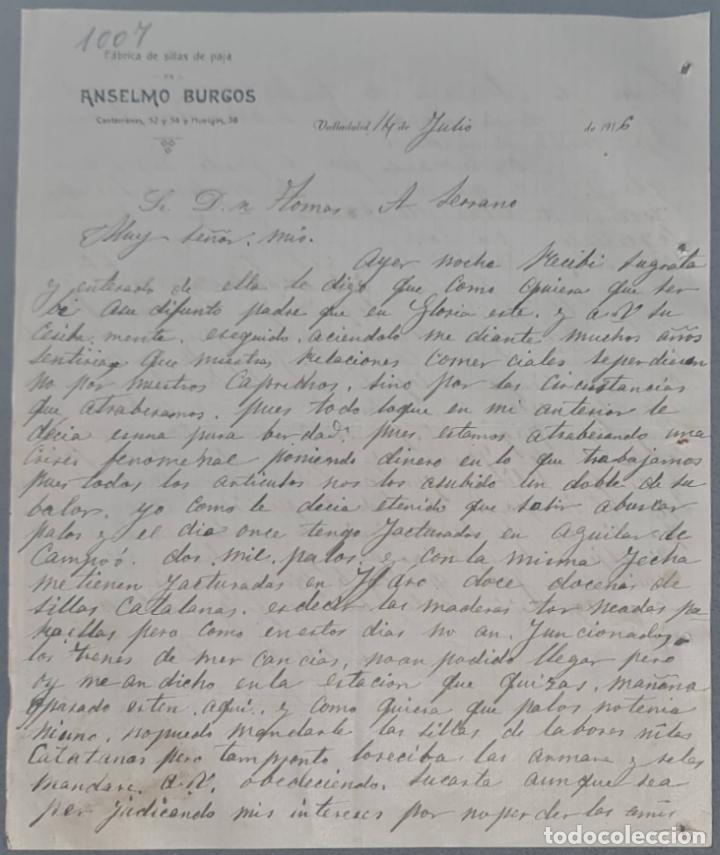 1007
Fábrica de sillas de paja
DE
ANSELMO BURGOS
Cantarranas, 52 y 54 y Huelgas, 38
Valladolid 14 de Julio de 1916
Sr. D.n Tomas A Serrano
Muy Señor, mio.
Ayer noche Recibi sugrata
y enterado de ella le digo que como quiera que ser
bi asu difunto padre que en Gloria este. y a V su
cesiba mente. eseguido. aciendolo me diante muchos años
sentiria que nuestras Relaciones comer ciales seperdiesen
no por nuestros caprichos, sino por las circustancias
que atrabesamos, pues todo loque en mi anterior le
decia esuna pura ber-dad; pues estamos atrabesando una
crisis fenomenal poniendo dinero en lo que trabajamos
pues todos los articulos nos los asubido un doble de su
balor, yo como le decia etenido que salir abuscar
palos y el dia once tengo facturados en aguilar de
Campoó. dos. mil. palos. y con la misma fecha
me tienen facturadas en Haro doce docenas de
sillas catalanas. esdecir las maderas tor neadas pa-
raellas pero como enestos dias no an. funcionado
los trenes de mer cancias, noan podido llegar pero
oy me an dicho enla estacion que quizas. mañana
opasado esten. aqui. y como quiera que palos notenia
ninguno. nopuedo mandarle las sillas de labores nitas
catalanas pero tampronto loreciba las armare y selas
mandare. a V. obedeciendo, sucarta aunque sea
per judicando mis intereses por noperder las amis